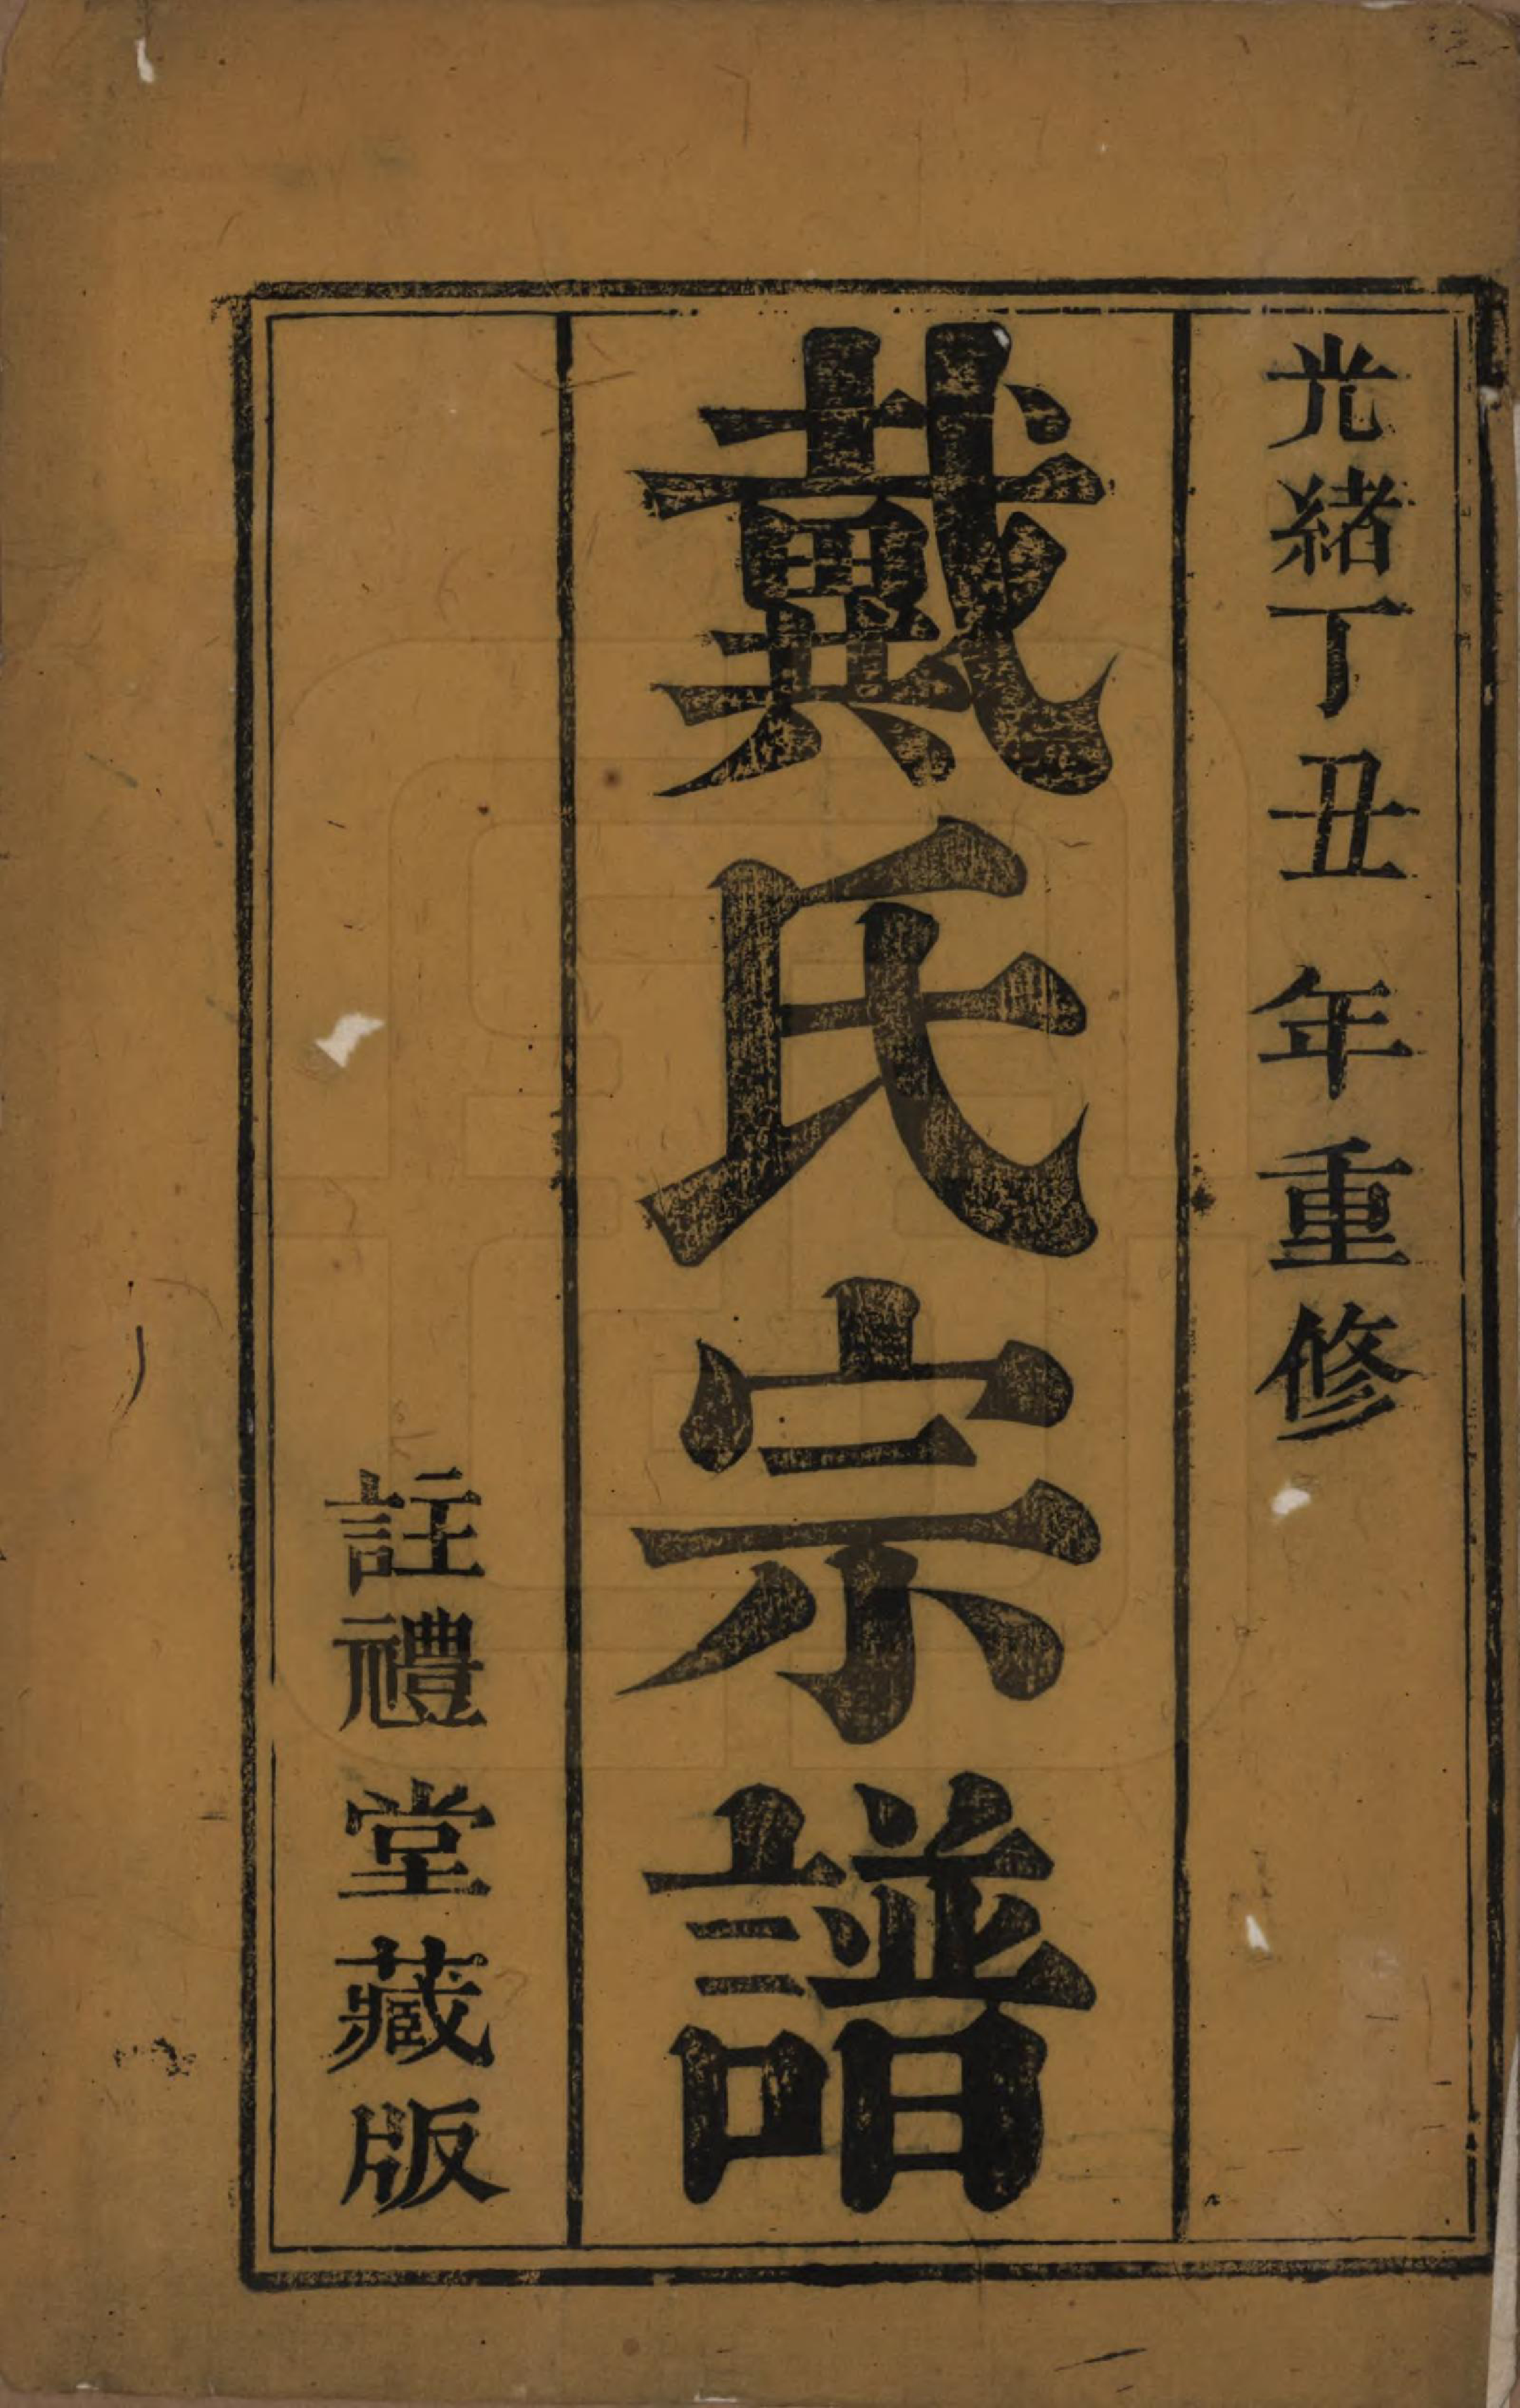 光緒丁丑年重修
戴氏宗譜
註禮堂藏版